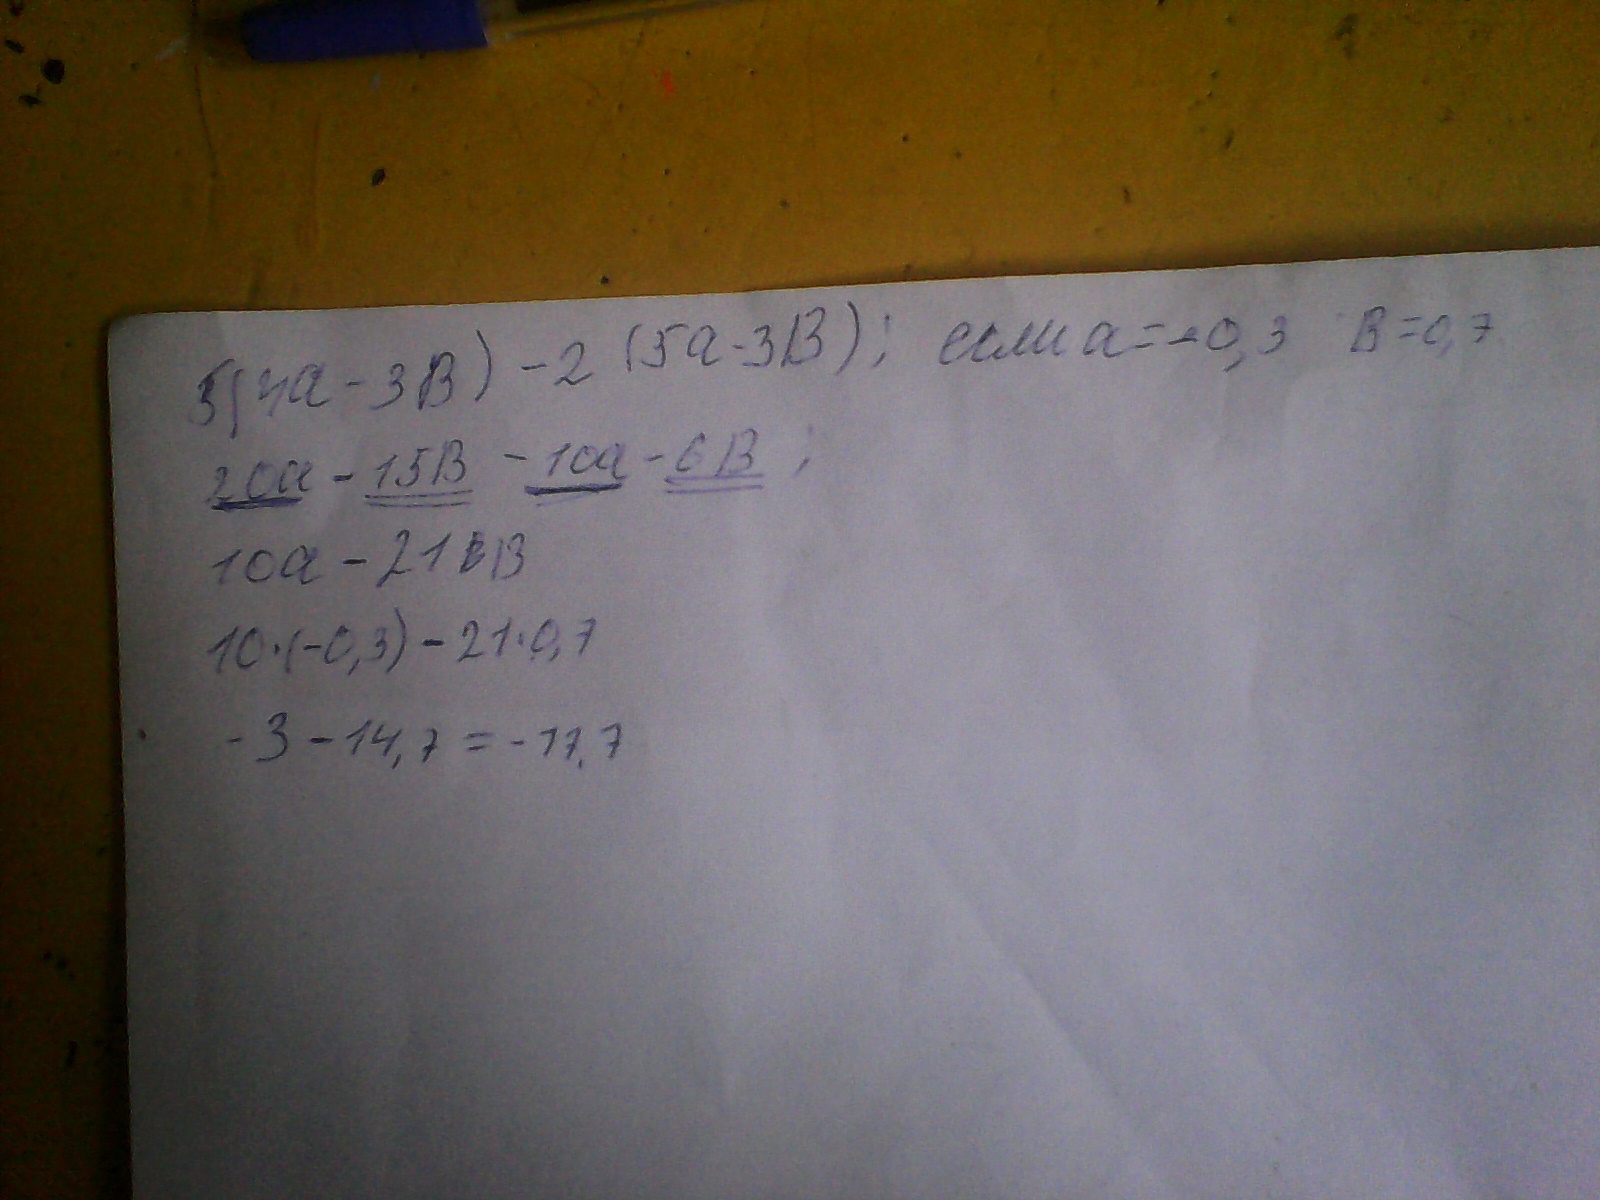 5(4a - 3В) - 2 (5a - 3В); если a = -0,3 В = 0,7
20a - 15В - 10a - 6В ;
10a - 21 В
10·(-0,3) - 21·0,7
- 3 - 14,7 = - 17,7